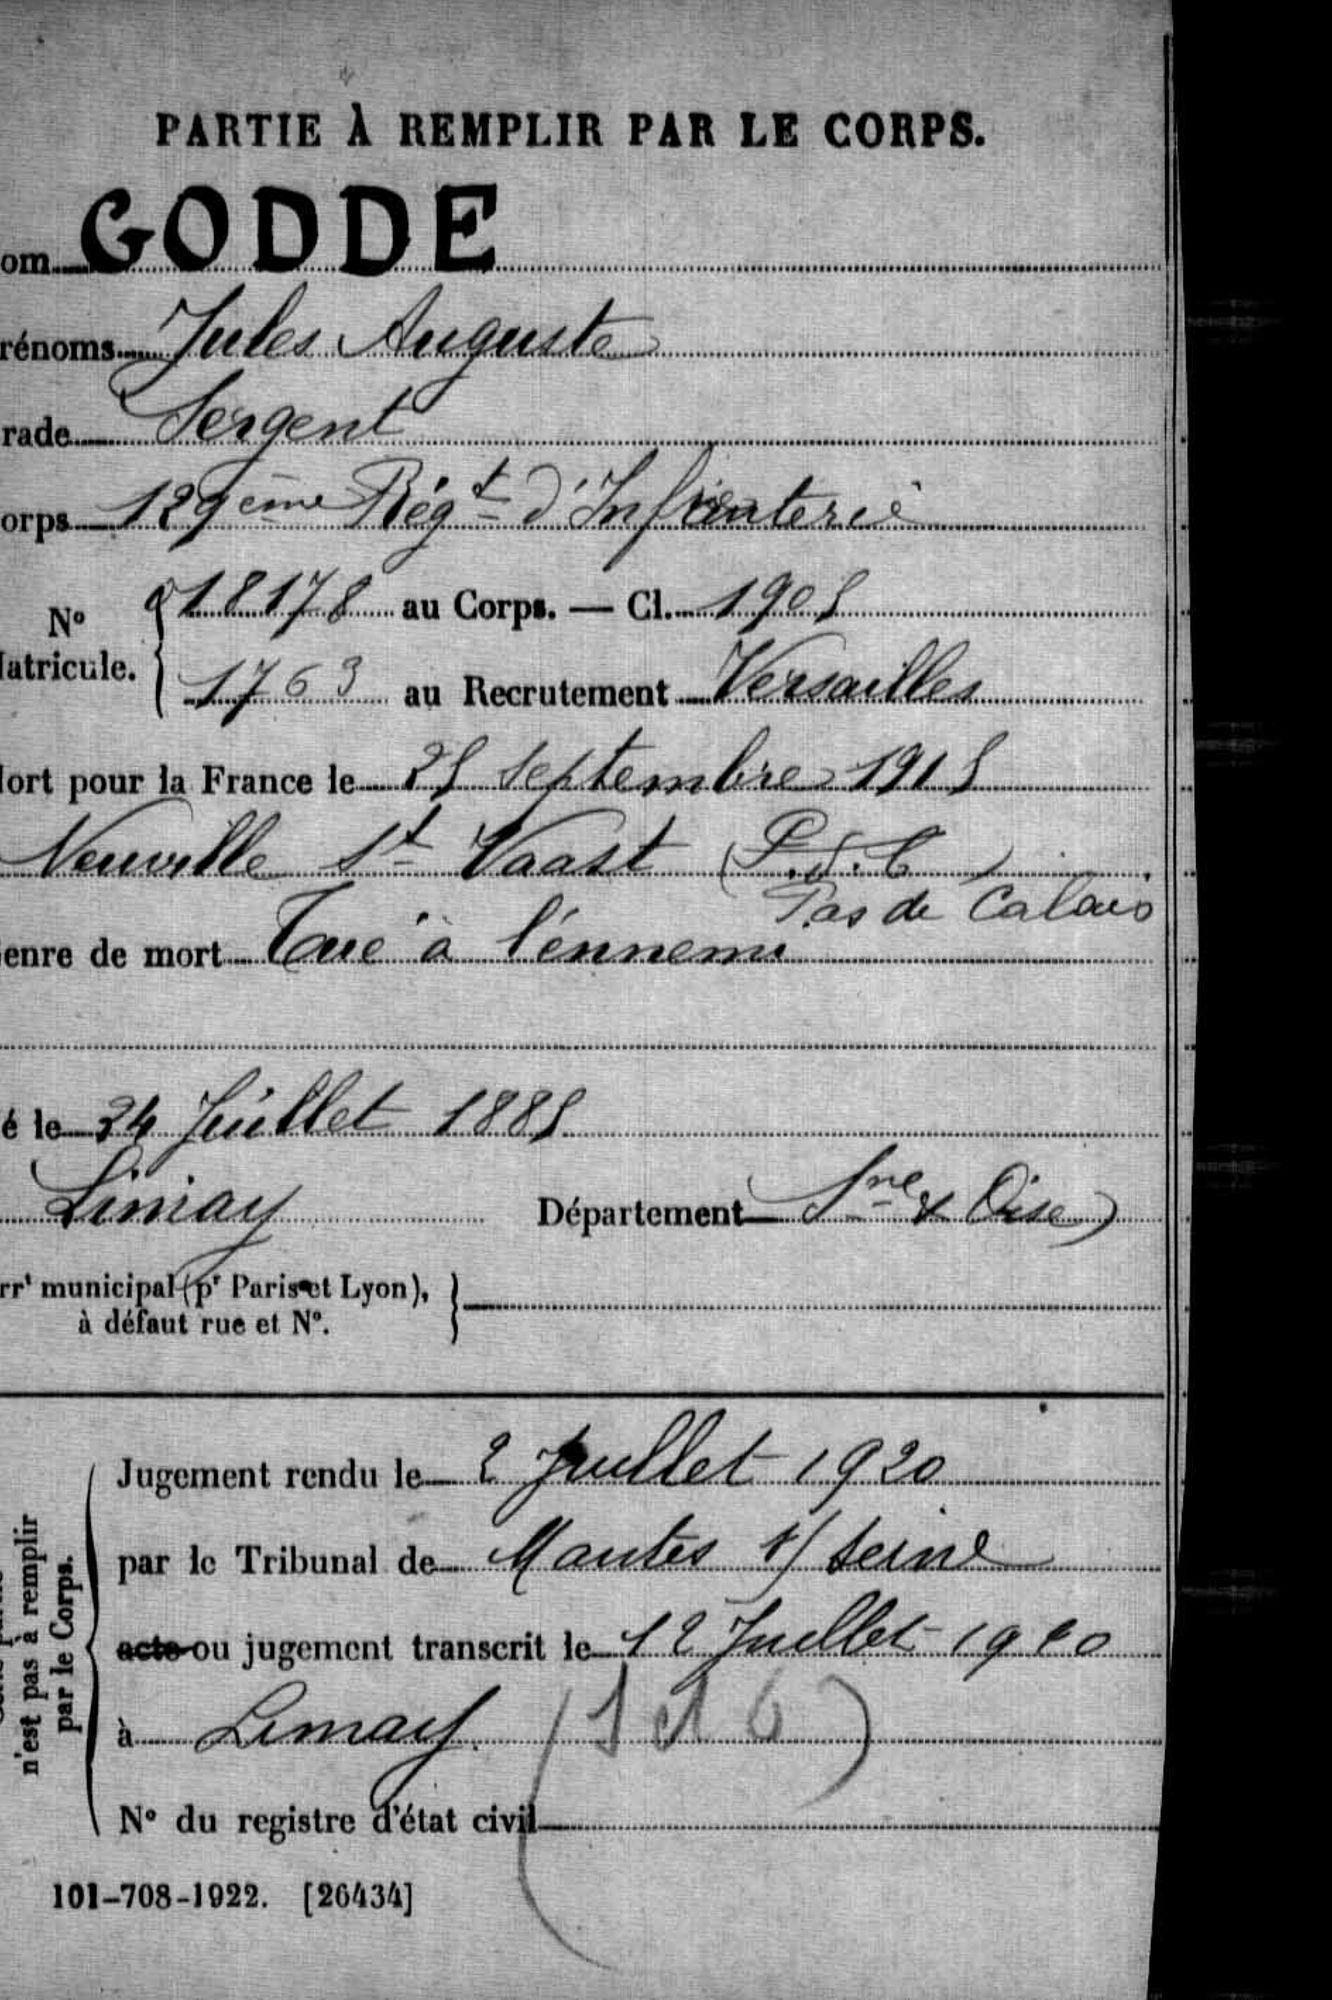 PARTIE À REMPLIR PAR LE CORPS.
om GODDE
rénoms Jules Auguste
rade Sergent
orps 129ème Régt d'Infanterie
N° Matricule. 18178 au Corps. — Cl. 1905
1763 au Recrutement Versailles
ort pour la France le 25 Septembre 1915
Neuville St Vaast (P.d.C)
Pas de Calais
enre de mort Tué à l'énnemi
é le 24 Juillet 1885
Limay Département Sne & Oise
rrt municipal (pr Paris et Lyon),
à défaut rue et N°.
Jugement rendu le 2 Juillet 1920
par le Tribunal de Mantes s/ Seine
acte ou jugement transcrit le 12 Juillet 1920
à Limay
N° du registre d'état civil
n'est pas à remplir
par le Corps.
101-708-1922. [26434]